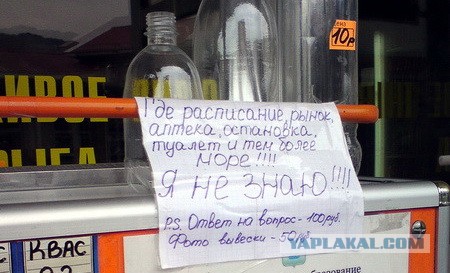 ЦЕНА
10р
ЖИВОЕ ПИВО
РЫБА
Где расписание, рынок,
аптека, остановка,
туалет и тем более
море!!!!
Я не знаю!!!!
P.S. Ответ на вопрос - 100 руб.
Фото вывески - 50 руб.
КВАС
YAPLAKAL.COM